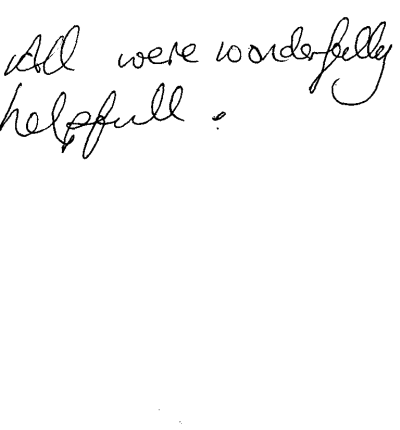 All were wonderfully
helpfull.